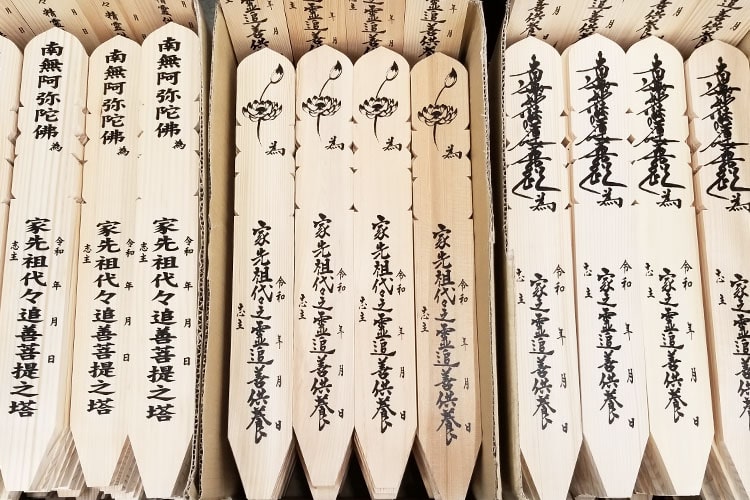 南無阿弥陀佛
為
令和 年 月 日
家先祖代々追善菩提之塔
志主
南無阿弥陀佛
為
令和 年 月 日
家先祖代々追善菩提之塔
志主
南無阿弥陀佛
為
令和 年 月 日
家先祖代々追善菩提之塔
志主
為
令和 年 月 日
家先祖代々之靈追善供養
志主
為
令和 年 月 日
家先祖代々之靈追善供養
志主
為
令和 年 月 日
家先祖代々之靈追善供養
志主
為
令和 年 月 日
家先祖代々之靈追善供養
志主
南無妙法蓮華経
為
令和 年 月 日
家之靈追善供養
志主
南無妙法蓮華経
為
令和 年 月 日
家之靈追善供養
志主
南無妙法蓮華経
為
令和 年 月 日
家之靈追善供養
志主
南無妙法蓮華経
為
家之靈追善供養
志主